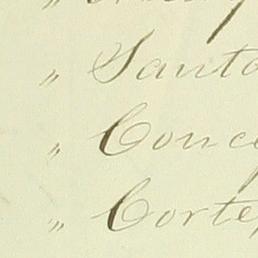 " Santa
" Conce
" Corte